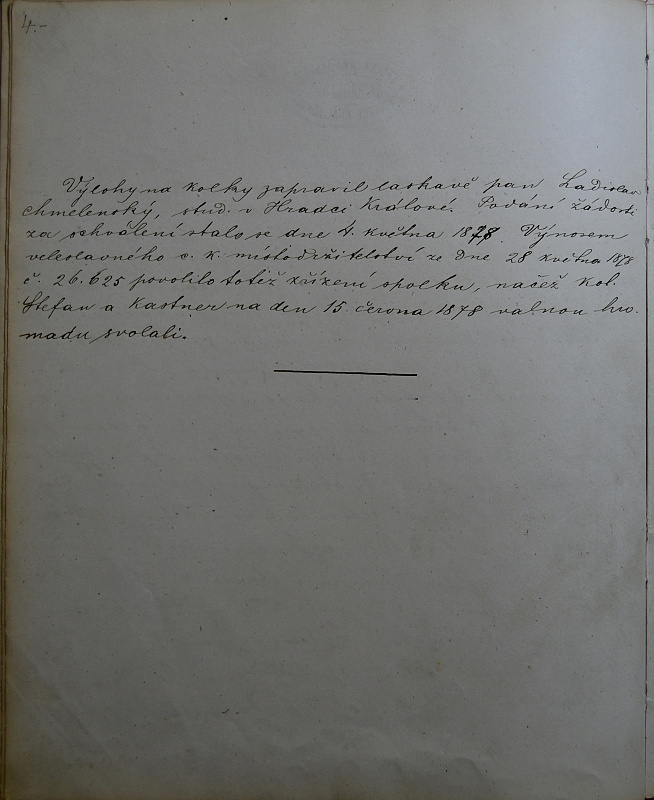 4.-
Výlohy na kolky zapravil laskavě pan Ladislav
Chmelenský, stud. v Hradci Králové. Podání žádosti
za schválení stalo se dne 1. května 1878. Výnosem
veleslavného c. k. místodržitelství ze dne 28 května 1878
č. 26.625 povolilo totéž zřízení spolku, načež kol.
Štefan a Kastner na den 15. června 1878 valnou hro-
madu svolali.